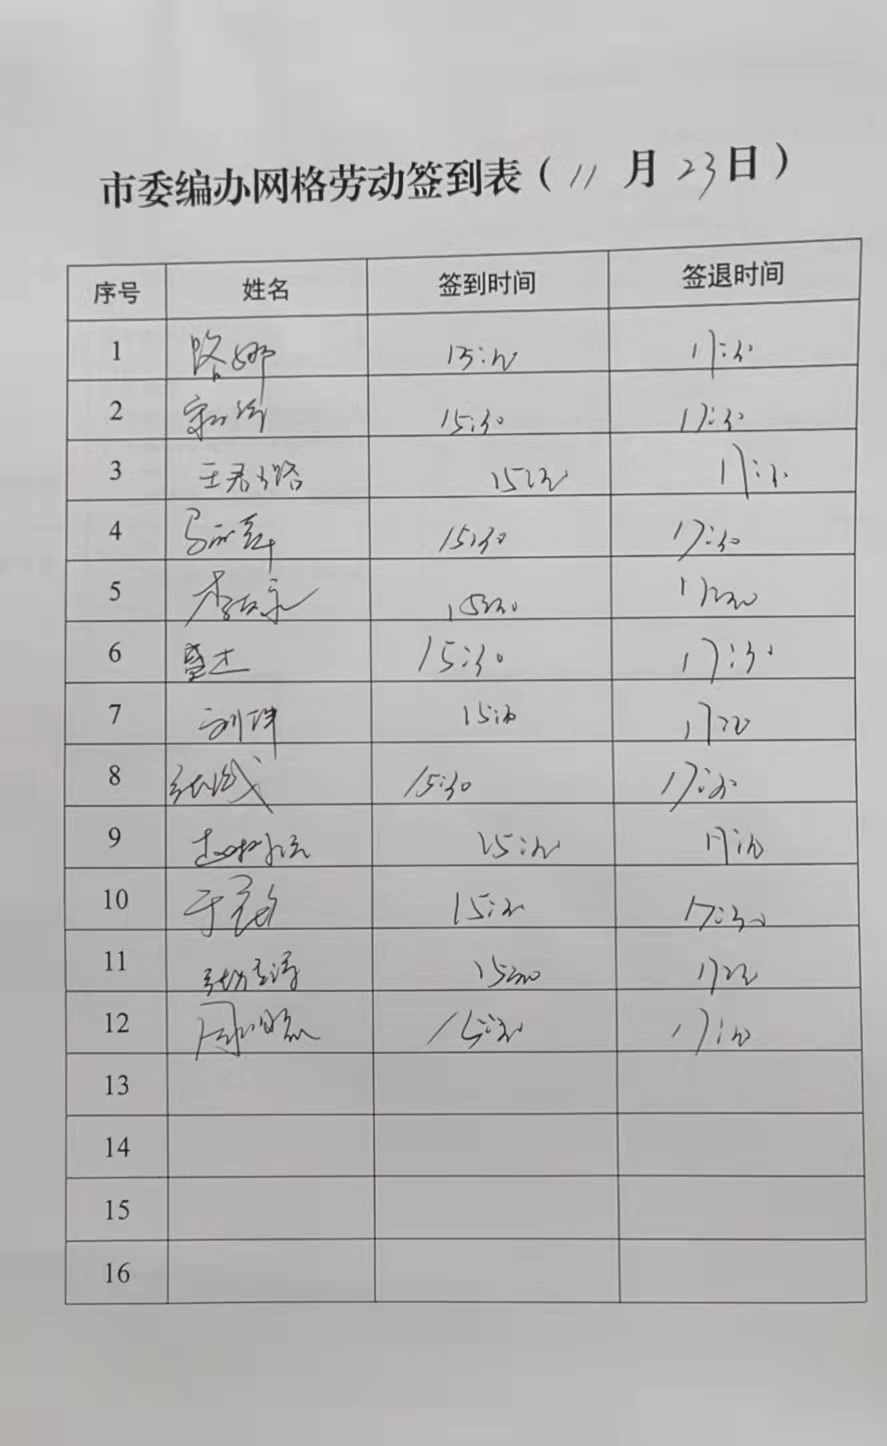 市委编办网格劳动签到表（11月23日）
序号 姓名 签到时间 签退时间
1 路娜 15:30 17:30
2 15:30 17:30
3 王君璐 15:30 17:30
4 15:30 17:30
5 15:30 17:30
6 15:30 17:30
7 刘坤 15:30 17:30
8 15:30 17:30
9 15:30 17:30
10 15:30 17:30
11 15:30 17:30
12 15:30 17:30
13
14
15
16